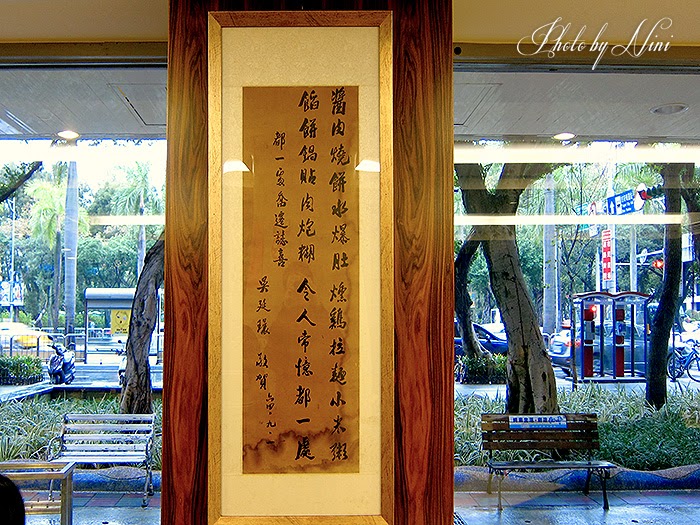 Photo by Nini
醬肉燒餅水爆肚燻鷄拉麵小米粥
餡餅鍋貼肉炮糊令人常憶都一處
都一處喬遷誌喜
吳延環 敬賀